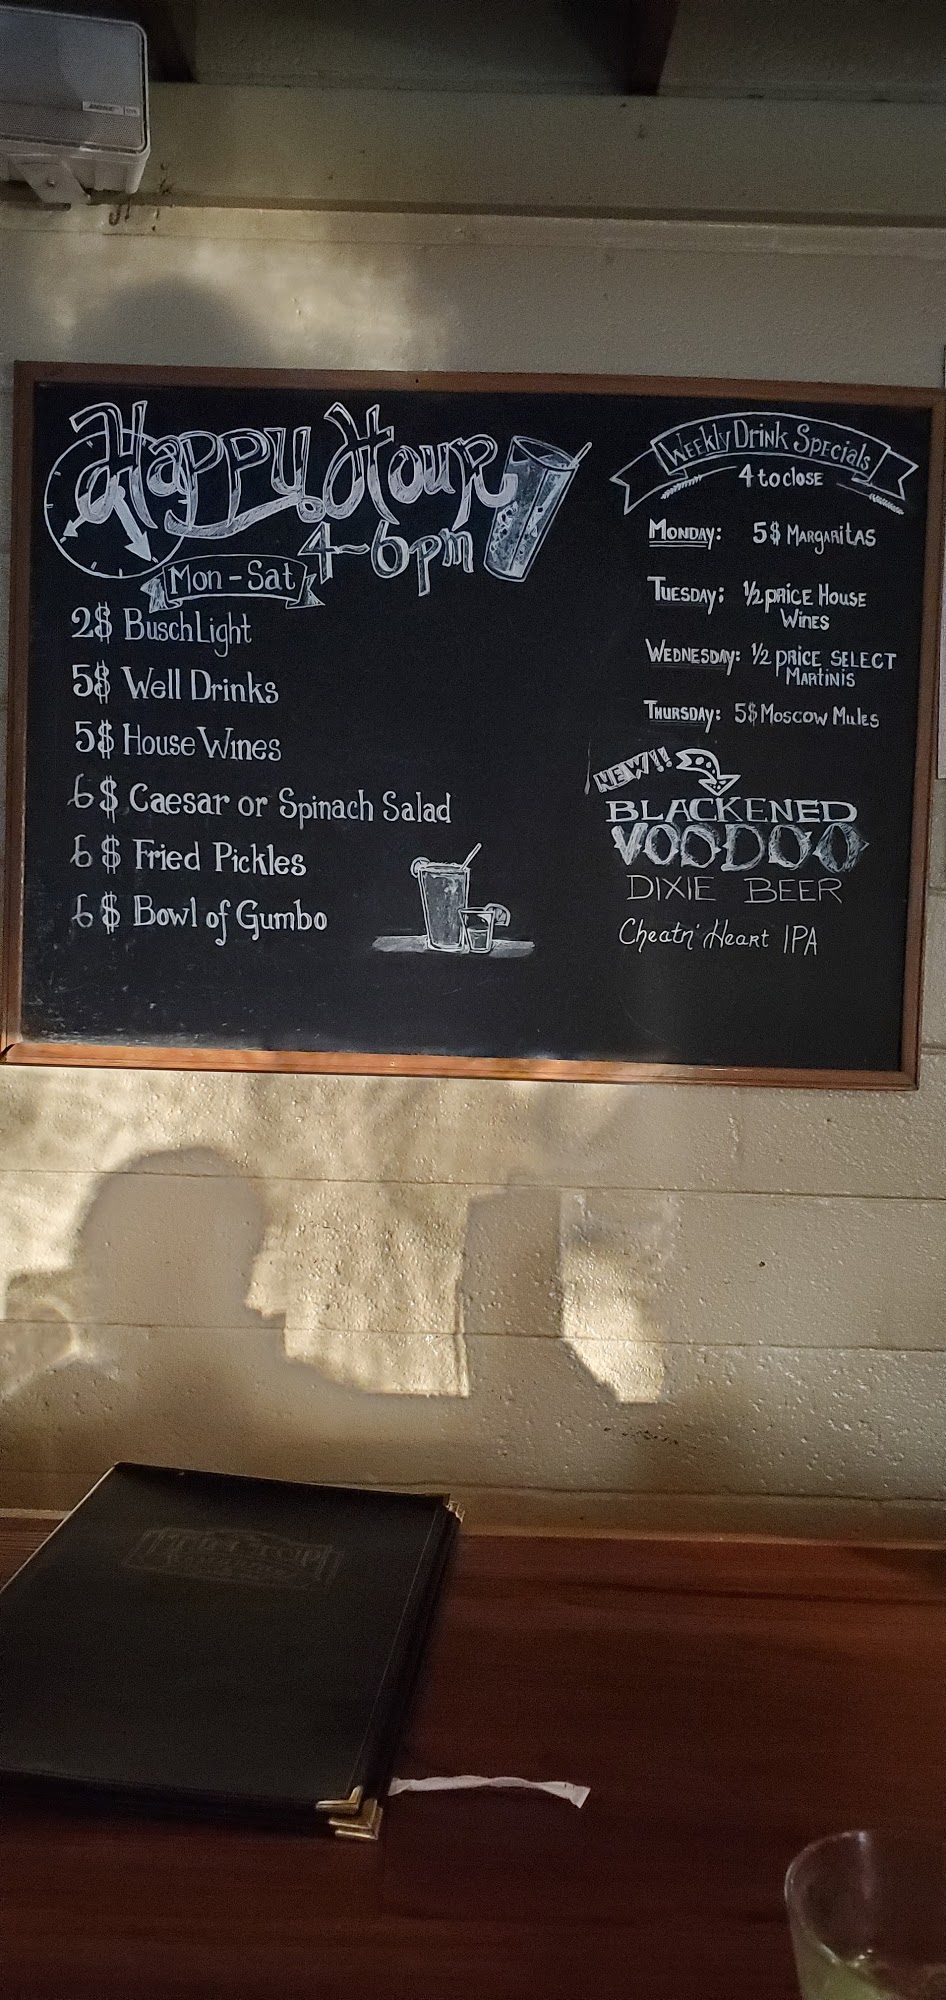 BOSE
Happy Hour
4-6pm
Mon-Sat
2$ Busch Light
5$ Well Drinks
5$ House Wines
6$ Caesar or Spinach Salad
6$ Fried Pickles
6$ Bowl of Gumbo
Weekly Drink Specials
4 to close
Monday: 5$ Margaritas
Tuesday: 1/2 price House
Wines
Wednesday: 1/2 price select
Martinis
Thursday: 5$ Moscow Mules
NEW!!
BLACKENED
VOODOO
DIXIE BEER
Cheatn' Heart IPA